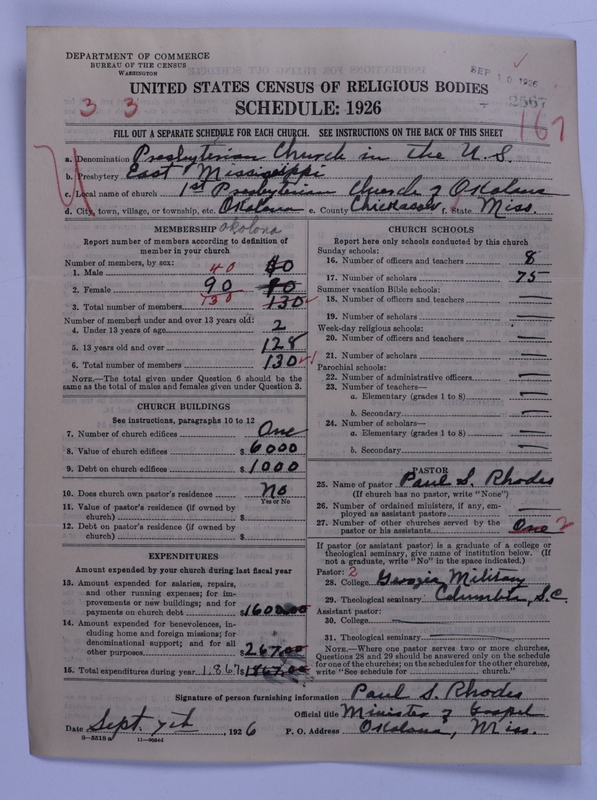 DEPARTMENT OF COMMERCE
BUREAU OF THE CENSUS
WASHINGTON
SEP 10 1926
2867
UNITED STATES CENSUS OF RELIGIOUS BODIES
3 3
SCHEDULE: 1926
167
FILL OUT A SEPARATE SCHEDULE FOR EACH CHURCH. SEE INSTRUCTIONS ON THE BACK OF THIS SHEET
a. Denomination Presbyterian Church in the U.S.
b. Presbytery East Mississippi
c. Local name of church 1st Presbyterian Church of Okolona
d. City, town, village, or township, etc. Okolona e. County Chickasaw f. State Miss.
Okolona
MEMBERSHIP
Report number of members according to definition of member in your church
Number of members, by sex:
1. Male 40 40
2. Female 90
130
3. Total number of members 130
Number of members under and over 13 years old:
4. Under 13 years of age 2
5. 13 years old and over 128
6. Total number of members 130
NOTE.—The total given under Question 6 should be the same as the total of males and females given under Question 3.
CHURCH BUILDINGS
See instructions, paragraphs 10 to 12
7. Number of church edifices One
8. Value of church edifices $ 6000
9. Debt on church edifices $ 1000
10. Does church own pastor's residence No
Yes or No
11. Value of pastor's residence (if owned by church) $
12. Debt on pastor's residence (if owned by church) $
EXPENDITURES
Amount expended by your church during last fiscal year
13. Amount expended for salaries, repairs, and other running expenses; for improvements or new buildings; and for payments on church debt $ 1600.00
14. Amount expended for benevolences, including home and foreign missions; for denominational support; and for all other purposes $ 267.00
15. Total expenditures during year 1,867 $ 1867.00
CHURCH SCHOOLS
Report here only schools conducted by this church
Sunday schools:
16. Number of officers and teachers 8
17. Number of scholars 75
Summer vacation Bible schools:
18. Number of officers and teachers —
19. Number of scholars —
Week-day religious schools:
20. Number of officers and teachers —
21. Number of scholars —
Parochial schools:
22. Number of administrative officers —
23. Number of teachers—
a. Elementary (grades 1 to 8) —
b. Secondary —
24. Number of scholars—
a. Elementary (grades 1 to 8) —
b. Secondary —
PASTOR
25. Name of pastor Paul S. Rhodes
(If church has no pastor, write "None")
26. Number of ordained ministers, if any, employed as assistant pastors —
27. Number of other churches served by the pastor or his assistants One 2
If pastor (or assistant pastor) is a graduate of a college or theological seminary, give name of institution below. (If not a graduate, write "No" in the space indicated.)
Pastor: 2
28. College Georgia Military
29. Theological seminary Columbia, S.C.
Assistant pastor:
30. College —
31. Theological seminary —
NOTE.—Where one pastor serves two or more churches, Questions 28 and 29 should be answered only on the schedule for one of the churches; on the schedules for the other churches, write "See schedule for church."
Signature of person furnishing information Paul S. Rhodes
Official title Minister of Gospel
Date Sept 7th, 1926 P. O. Address Okolona, Miss.